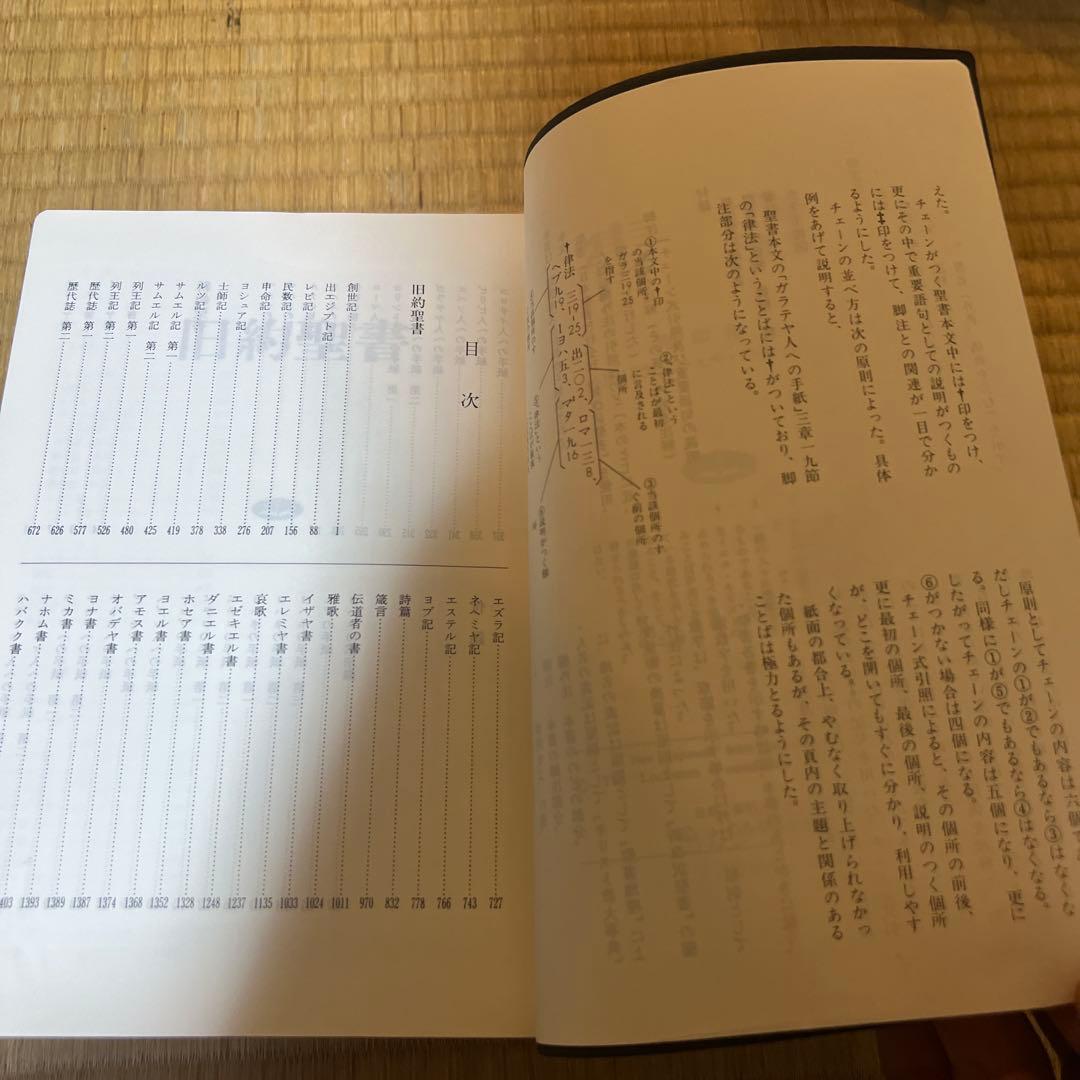 えた。
チェーンがつく聖書本文中には†印をつけ、
更にその中で重要語句としての説明がつくもの
には‡印をつけて、脚注との関連が一目で分か
るようにした。
チェーンの並べ方は次の原則によった。具体
例をあげて説明すると、
聖書本文の「ガラテヤ人への手紙」三章一九節
の「律法」ということばには†がついており、脚
注部分は次のようになっている。
①本文中の†印
の当該個所。
ガラ三19、25
を指す
②「律法」という
ことばが最初
に言及される
個所
③当該個所のす
ぐ前の個所
†律法 三19、25、出二〇2、ロマ一三8、
ヘブ九19、Ⅰヨハ五3、マタ一九16
原則としてチェーンの内容は六個
だしチェーンの①が②でもあるなら③はなくな
る。同様に①が⑤でもあるなら④はなくなる。
したがってチェーンの内容は五個になり、更に
⑥がつかない場合は四個になる。
チェーン式引照によると、その個所の前後、
更に最初の個所、最後の個所、説明のつく個所
が、どこを開いてもすぐに分かり、利用しやす
くなっている。
紙面の都合上、やむなく取り上げられなかっ
た個所もあるが、その頁内の主題と関係のある
ことばは極力とるようにした。
目次
旧約聖書
創世記 1
出エジプト記 88
レビ記 156
民数記 207
申命記 276
ヨシュア記 338
士師記 378
ルツ記 419
サムエル記 第一 425
サムエル記 第二 480
列王記 第一 526
列王記 第二 577
歴代誌 第一 626
歴代誌 第二 672
エズラ記 727
ネヘミヤ記 743
エステル記 766
ヨブ記 778
詩篇 832
箴言 970
伝道者の書 1011
雅歌 1024
イザヤ書 1033
エレミヤ書 1135
哀歌 1237
エゼキエル書 1248
ダニエル書 1328
ホセア書 1352
ヨエル書 1368
アモス書 1374
オバデヤ書 1387
ヨナ書 1389
ミカ書 1393
ナホム書 403
ハバクク書